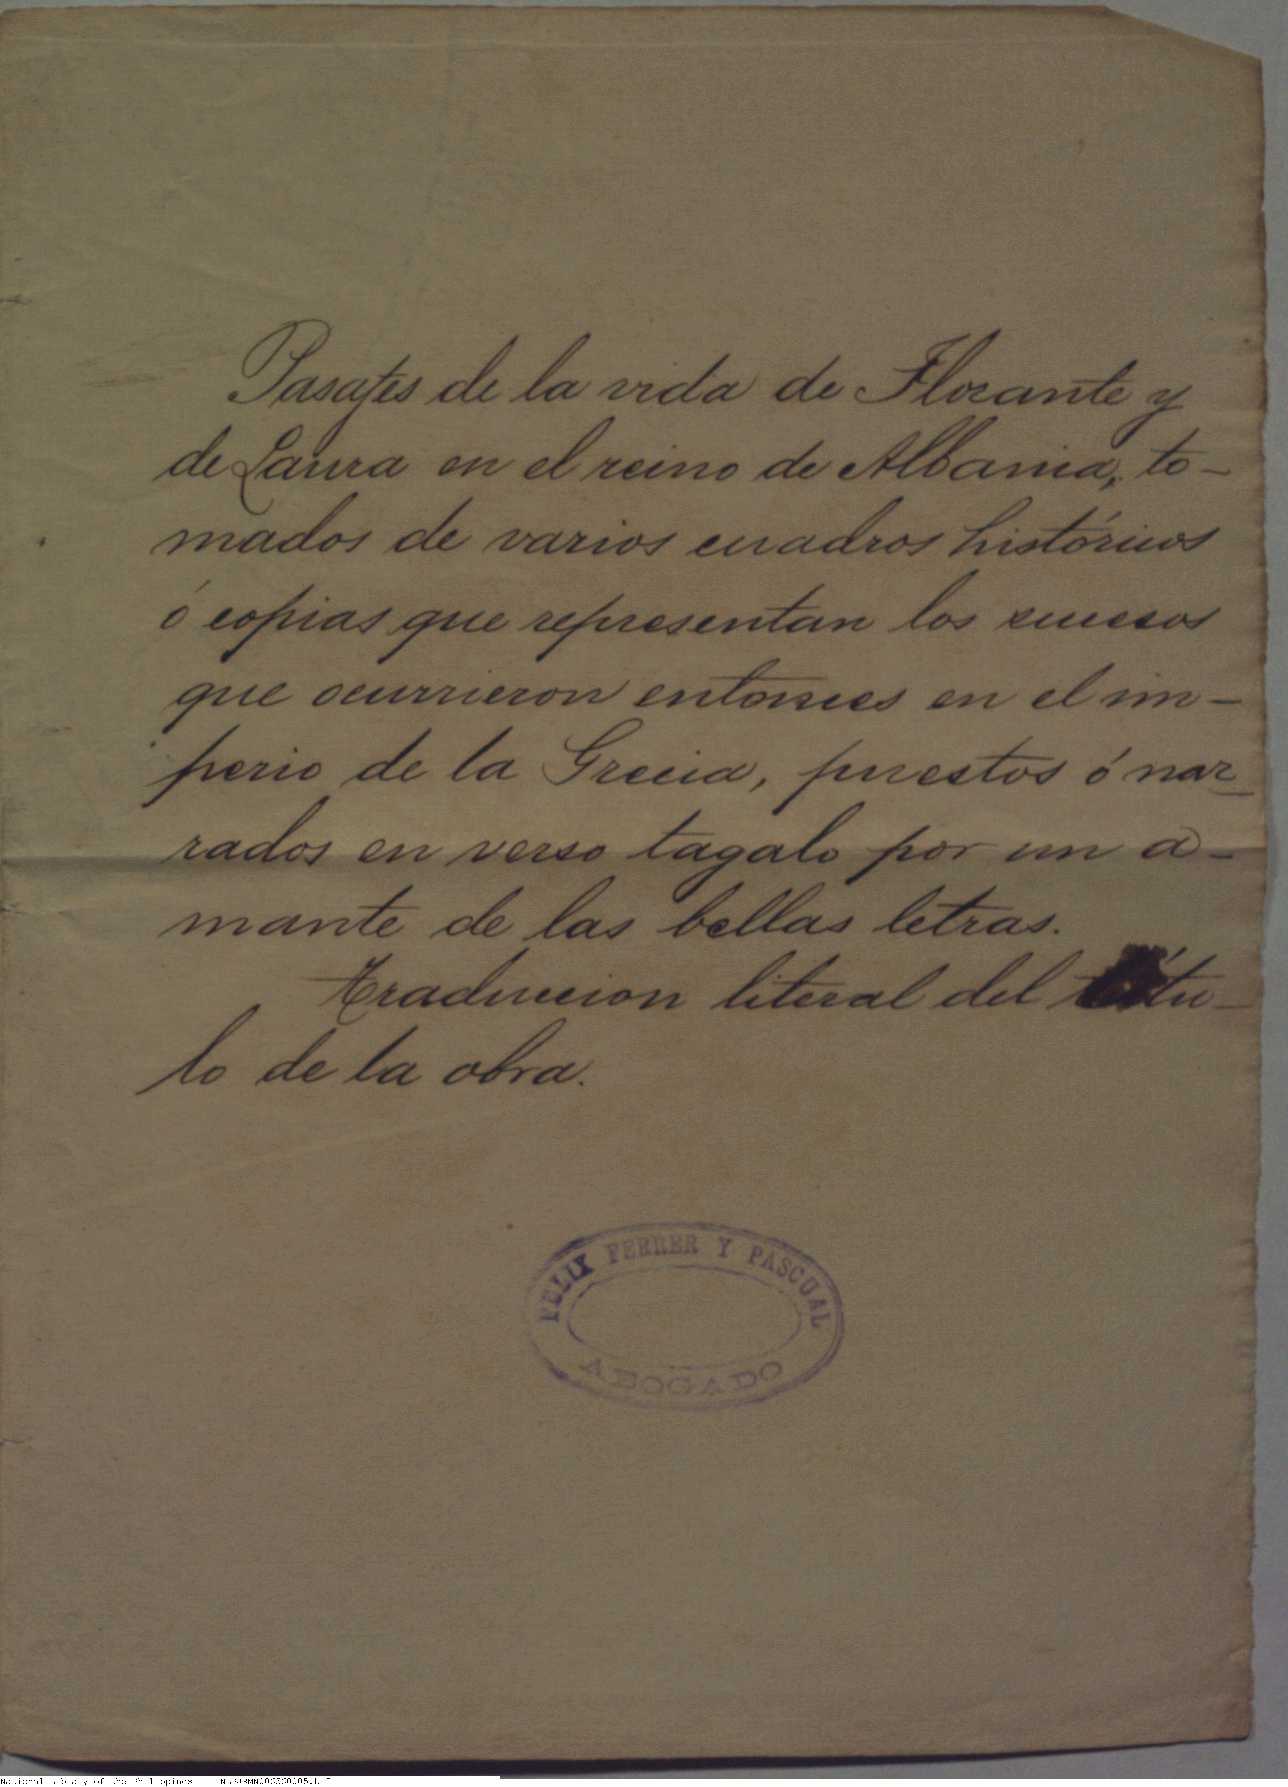 Pasajes de la vida de Florante y
de Laura en el reino de Albania, to-
mados de varios cuadros históricos
ó copias que representan los sucesos
que ocurrieron entonces en el im-
perio de la Grecia, puestos ó nar-
rados en verso tagalo por un a-
mante de las bellas letras.
Traduccion literal del títu-
lo de la obra.
FELIX FERRER Y PASCUAL
ABOGADO
National Library of the Philippines